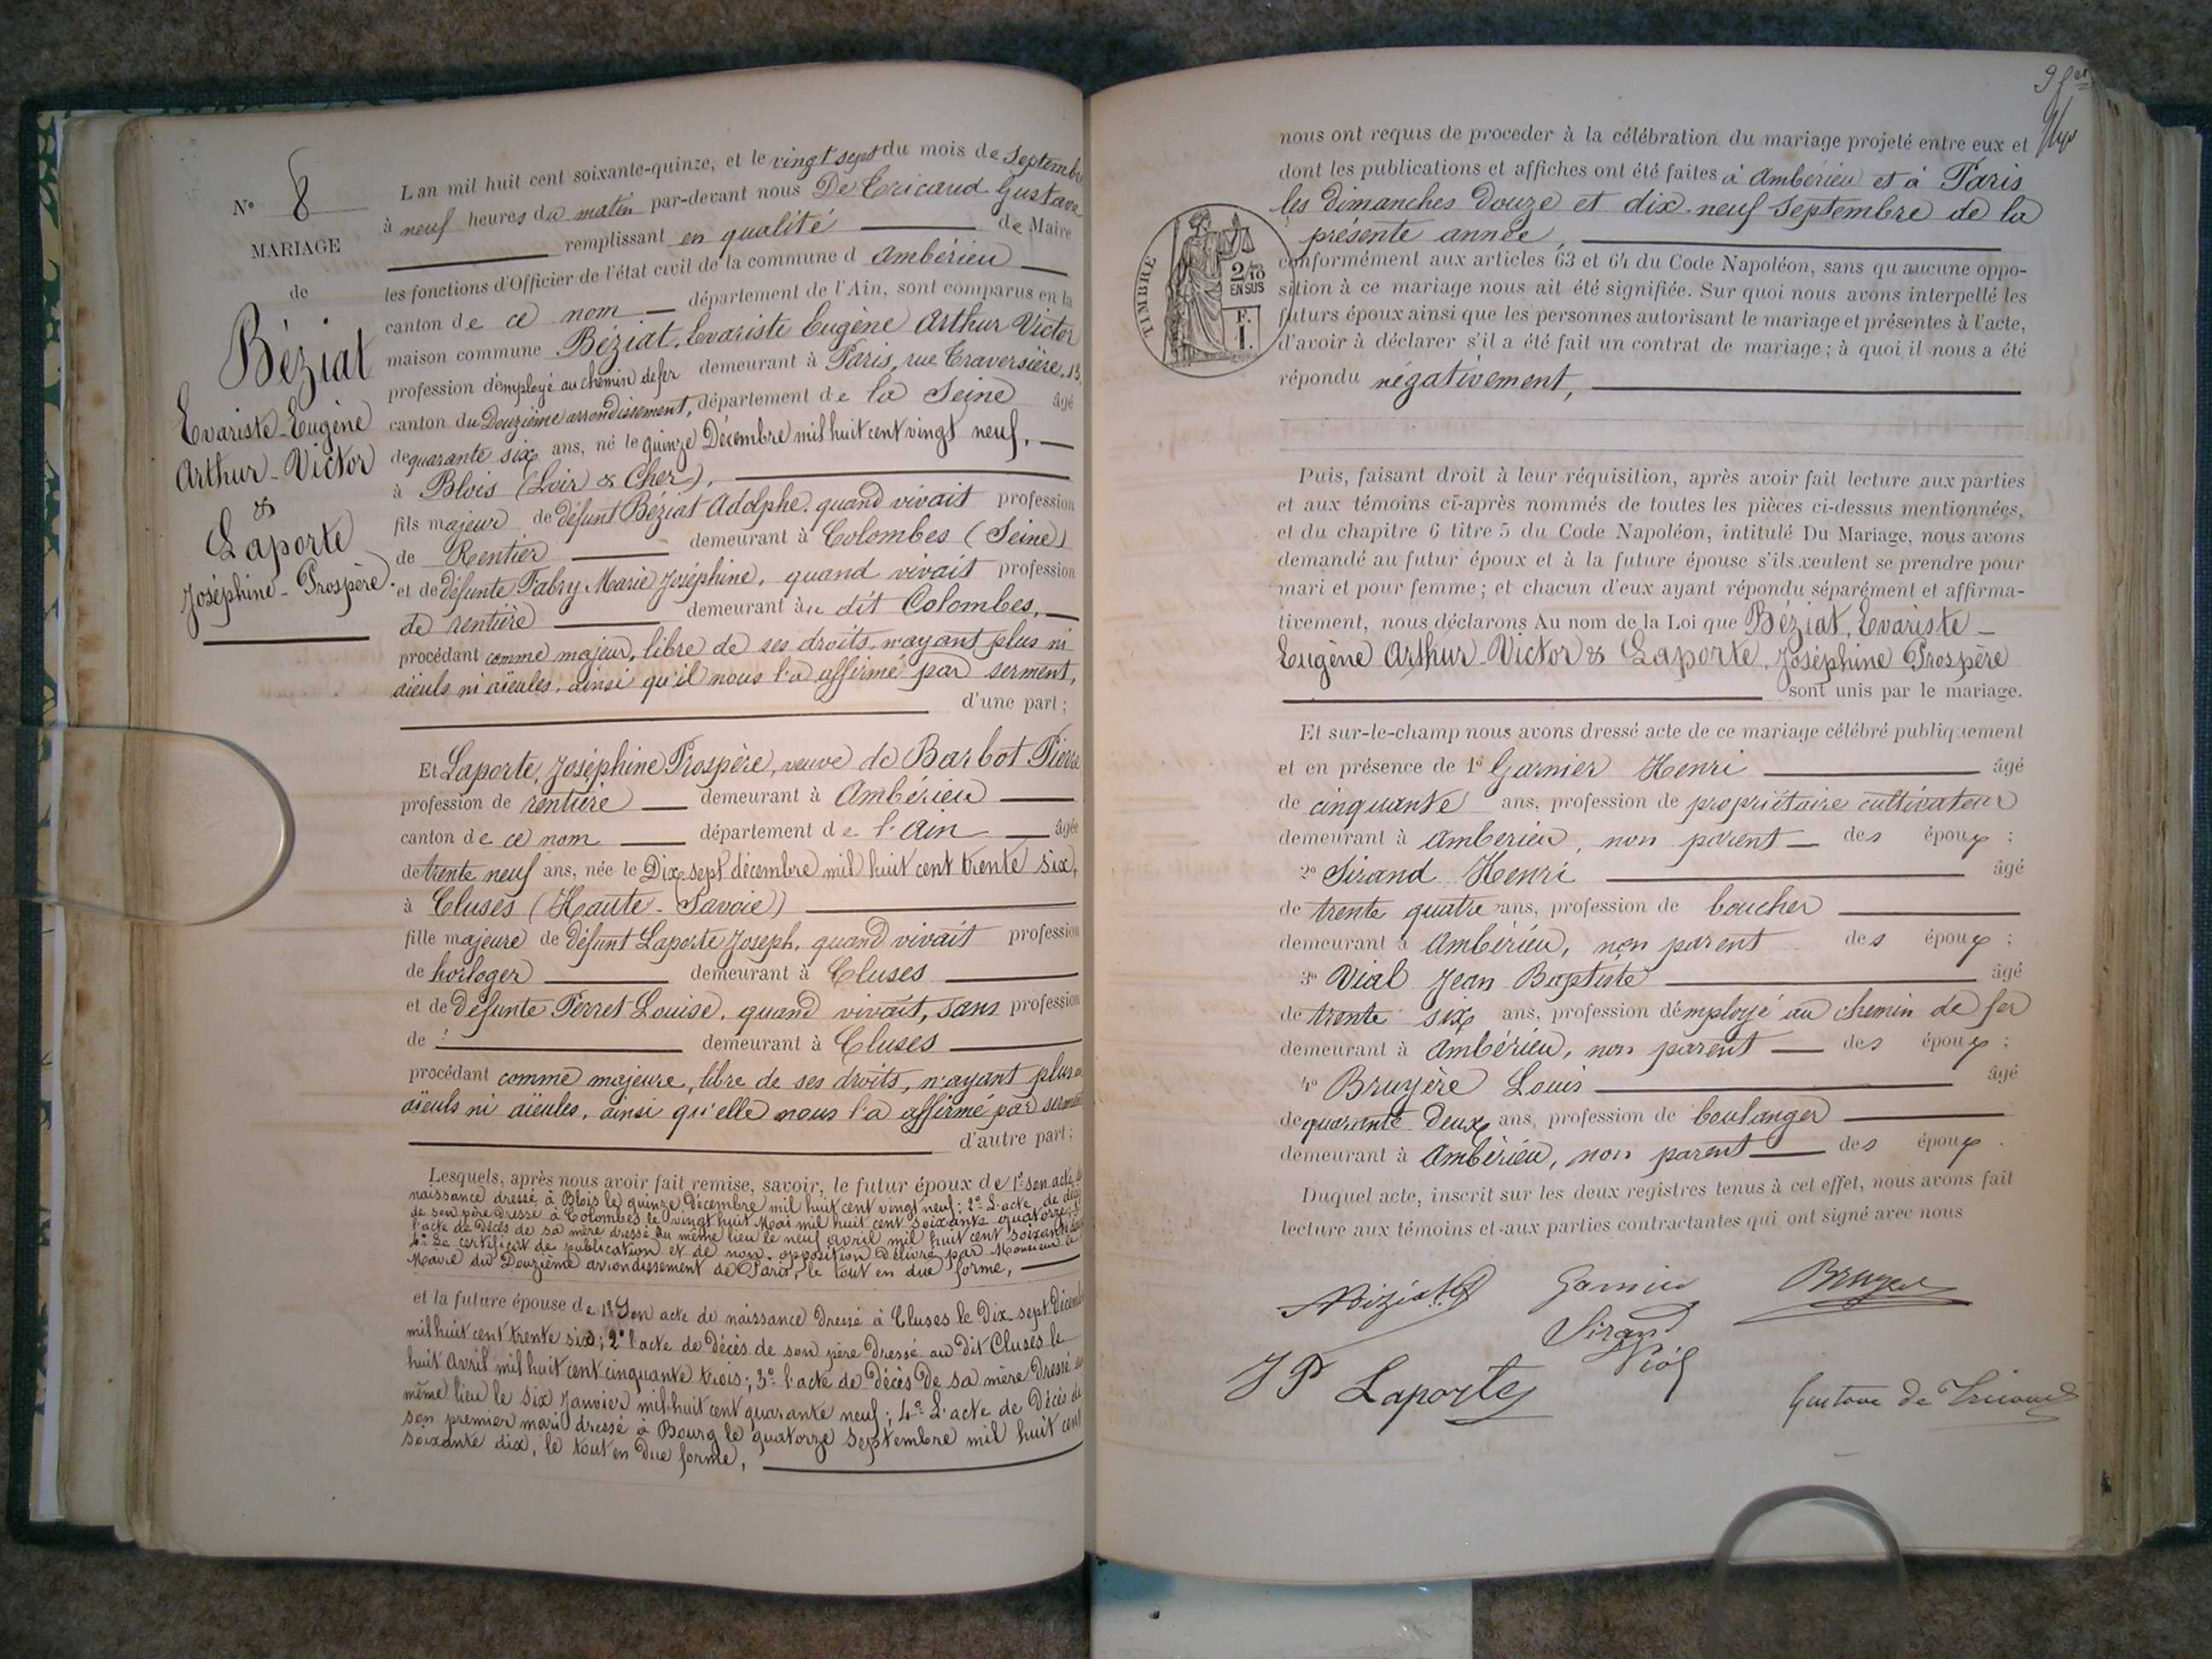 N° 8
MARIAGE
de
Béziat
Evariste-Eugène
Arthur-Victor
&
Laporte
Joséphine-Prospère.
L'an mil huit cent soixante-quinze, et le vingt sept du mois de Septembre
à neuf heures du matin par-devant nous De Tricaud Gustave
remplissant en qualité de Maire
les fonctions d'Officier de l'état civil de la commune d Ambérieu
canton de ce nom département de l'Ain, sont comparus en la
maison commune Béziat, Evariste Eugène Arthur Victor
profession d'employé au chemin de fer demeurant à Paris, rue Traversière, 13,
canton du Douzième arrondissement, département de la Seine âgé
de quarante six ans, né le quinze Décembre mil huit cent vingt neuf,
à Blois (Loir & Cher),
fils majeur de défunt Béziat Adolphe, quand vivait profession
de Rentier demeurant à Colombes (Seine)
et de défunte Fabry Marie Joséphine, quand vivait profession
de rentière demeurant au dit Colombes,
procédant comme majeur, libre de ses droits, n'ayant plus ni
aïeuls ni aïeules, ainsi qu'il nous l'a affirmé par serment,
d'une part;
Et Laporte, Joséphine Prospère, veuve de Barbot Pierre
profession de rentière demeurant à Ambérieu
canton de ce nom département de l'Ain âgée
de trente neuf ans, née le Dix-sept décembre mil huit cent trente six,
à Cluses (Haute-Savoie)
fille majeure de défunt Laporte Joseph, quand vivait profession
de horloger demeurant à Cluses
et de défunte Perret Louise, quand vivait, sans profession
de demeurant à Cluses
procédant comme majeure, libre de ses droits, n'ayant plus ni
aïeuls ni aïeules, ainsi qu'elle nous l'a affirmé par serment
d'autre part;
Lesquels, après nous avoir fait remise, savoir, le futur époux de 1° son acte de
naissance dressé à Blois le quinze Décembre mil huit cent vingt neuf; 2° L'acte de décès
de son père dressé à Colombes le vingt huit Mai mil huit cent soixante quatorze;
l'acte de décès de sa mère dressé au même lieu le neuf avril mil huit cent soixante
4° Le certificat de publication et de non-opposition délivré par Monsieur le
Maire du Douzième arrondissement de Paris, le tout en due forme,
et la future épouse de 1° Son acte de naissance dressé à Cluses le Dix-sept Décembre
mil huit cent trente six; 2° l'acte de décès de son père dressé au dit Cluses le
huit Avril mil huit cent cinquante trois; 3° l'acte de décès de sa mère dressé au
même lieu le six Janvier mil huit cent quarante neuf; 4° L'acte de Décès de
son premier mari dressé à Bourg le quatorze Septembre mil huit cent
soixante dix, le tout en due forme,
nous ont requis de procéder à la célébration du mariage projeté entre eux et
dont les publications et affiches ont été faites à Ambérieu et à Paris
les Dimanches Douze et dix-neuf Septembre de la
présente année,
TIMBRE
2/10
EN SUS
F.
1.
conformément aux articles 63 et 64 du Code Napoléon, sans qu'aucune oppo-
sition à ce mariage nous ait été signifiée. Sur quoi nous avons interpellé les
futurs époux ainsi que les personnes autorisant le mariage et présentes à l'acte,
d'avoir à déclarer s'il a été fait un contrat de mariage; à quoi il nous a été
répondu négativement,
Puis, faisant droit à leur réquisition, après avoir fait lecture aux parties
et aux témoins ci-après nommés de toutes les pièces ci-dessus mentionnées,
et du chapitre 6 titre 5 du Code Napoléon, intitulé Du Mariage, nous avons
demandé au futur époux et à la future épouse s'ils veulent se prendre pour
mari et pour femme; et chacun d'eux ayant répondu séparément et affirma-
tivement, nous déclarons Au nom de la Loi que Béziat, Evariste-
Eugène Arthur-Victor & Laporte, Joséphine Prospère
sont unis par le mariage.
Et sur-le-champ nous avons dressé acte de ce mariage célébré publiquement
et en présence de 1° Garnier Henri âgé
de cinquante ans, profession de propriétaire cultivateur
demeurant à Ambérieu, non parent des époux;
2° Sirand Henri âgé
de trente quatre ans, profession de boucher
demeurant à Ambérieu, non parent des époux;
3° Vial Jean Baptiste âgé
de trente six ans, profession d'employé au chemin de fer
demeurant à Ambérieu, non parent des époux;
4° Bruyère Louis âgé
de quarante Deux ans, profession de boulanger
demeurant à Ambérieu, non parent des époux.
Duquel acte, inscrit sur les deux registres tenus à cet effet, nous avons fait
lecture aux témoins et aux parties contractantes qui ont signé avec nous
Garnier
Sirand
Vial
J P Laporte
Gustave de Tricaud